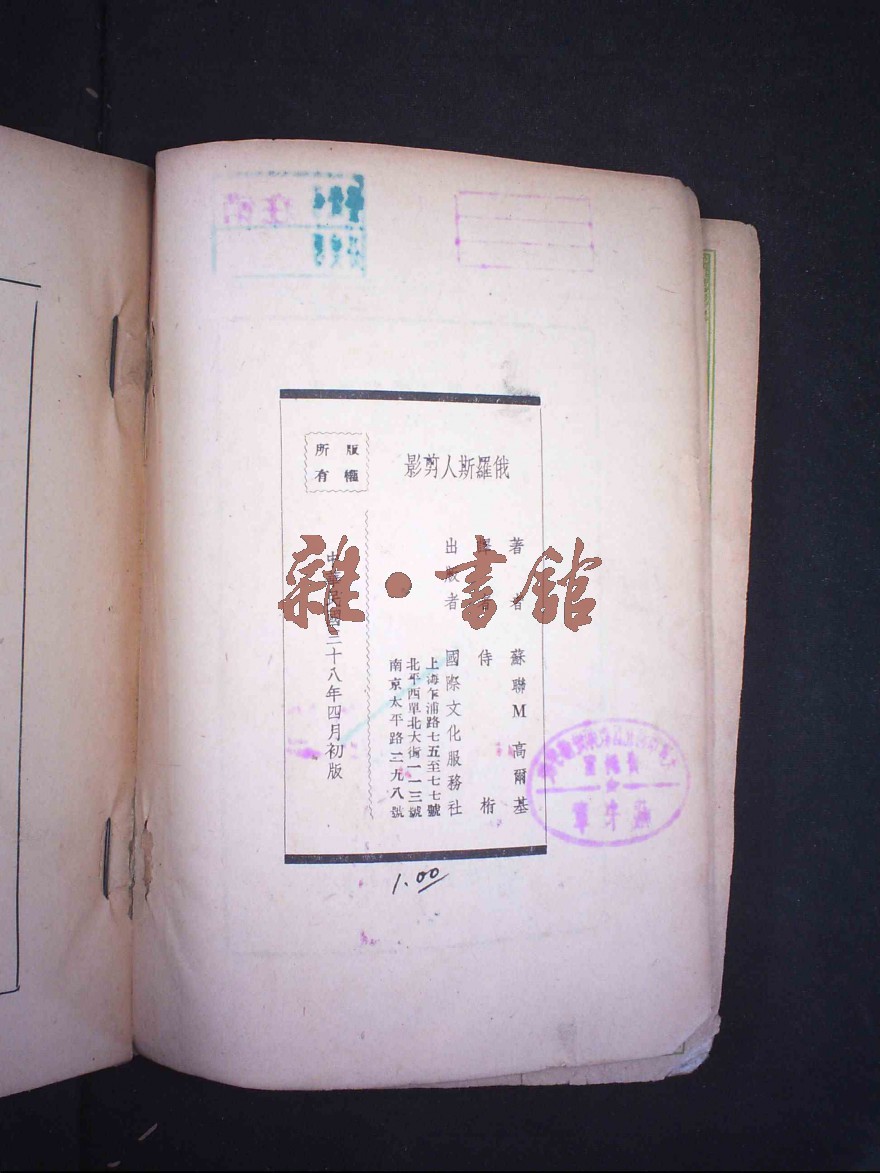 俄羅斯人剪影
著者 蘇聯M高爾基
譯者 侍桁
出版者 國際文化服務社
上海乍浦路七五至七七號
北平西單北大街一一三號
南京太平路三九八號
版權所有
中華民國三十八年四月初版
雜·書館
1.00